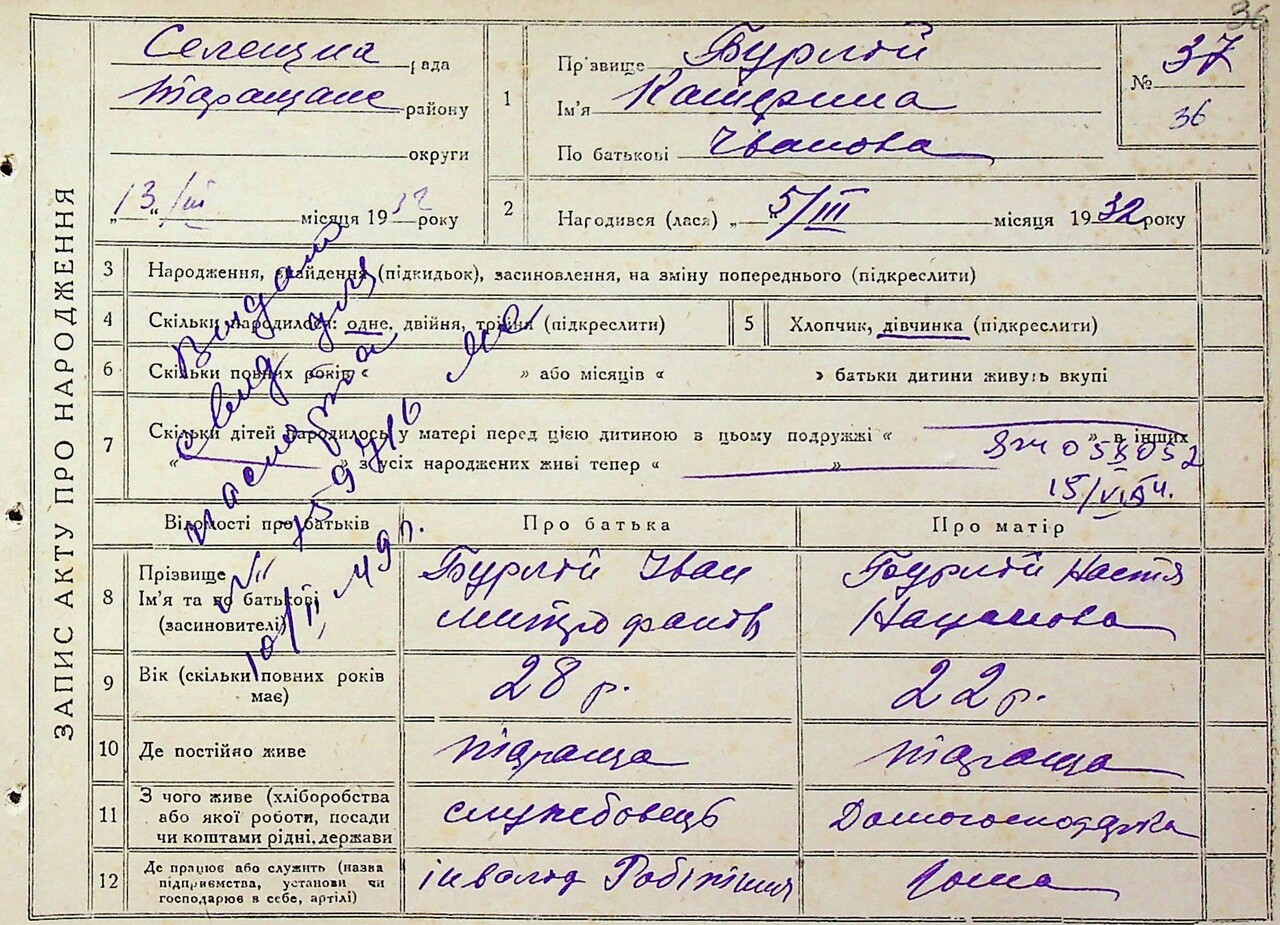 36
ЗАПИС АКТУ ПРО НАРОДЖЕННЯ
Селещна рада
району
округи
„13“/III місяця 1932 року
1
Прізвище Бурлій
Ім'я Катерина
По батькові Іванова
№ 37
36
2
Нагодився (лася) „5/III місяця 1932 року
3
Народження, знайдення (підкидьок), засиновлення, на зміну попереднього (підкреслити)
4
Скільки народилося: одне, двійня, трійня (підкреслити)
5
Хлопчик, дівчинка (підкреслити)
6
Скільки повних років « » або місяців « » батьки дитини живуть вкупі
7
Скільки дітей народилось у матері перед цією дитиною в цьому подружжі « » в інших
« » з усіх народжених живі тепер « »
15/VI 54.
Видано
свид для
паспорта
10/II 49 р.
Відомості про батьків
Про батька
Про матір
8
Прізвище
Ім'я та по батькові
(засиновителі)
Бурлій Іван
Митрофанів
Бурлій Настя
9
Вік (скільки повних років
має)
28 р.
22 р.
10
Де постійно живе
11
З чого живе (хліборобства
або якої роботи, посади
чи коштами рідні, держави
службовець
Домогосподарка
12
Де працює або служить (назва
підприємства, установи чи
господарює в себе, артілі)